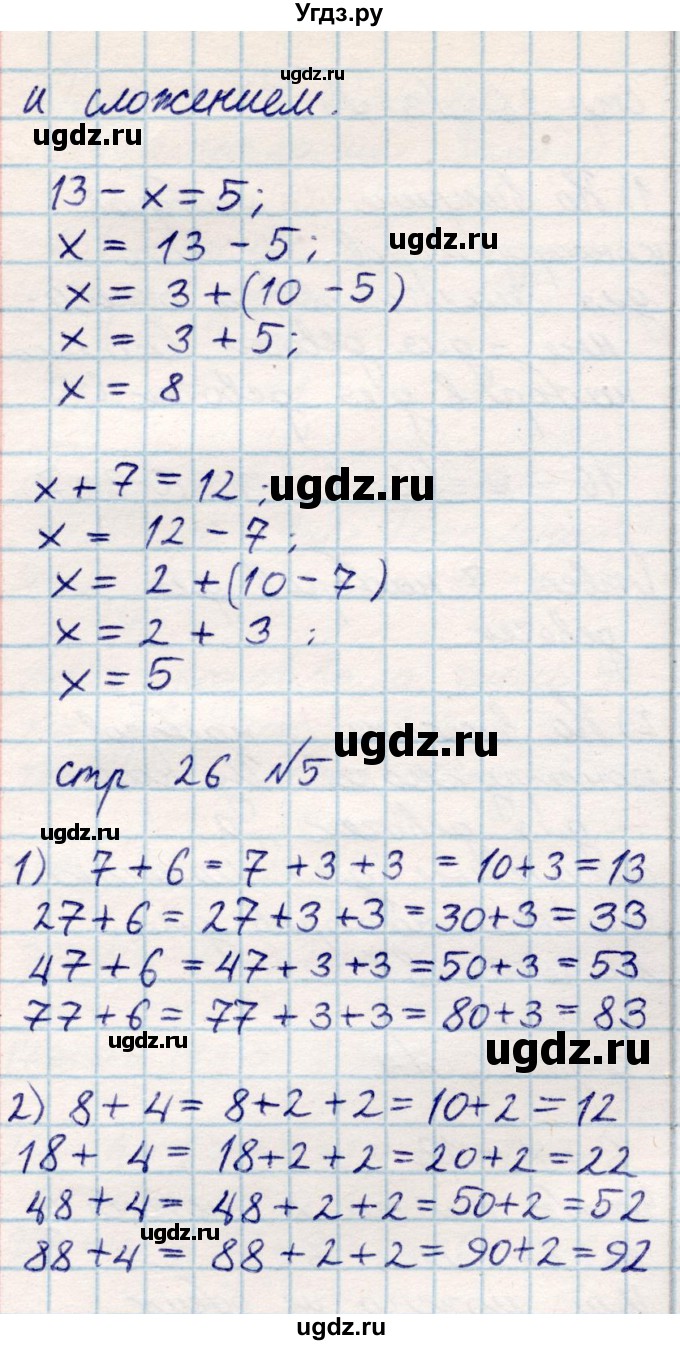 Угдз.ру
ugdz.ru
и сложением.
ugdz.ru
13 - x = 5;
x = 13 - 5;
ugdz.ru
x = 3 + (10 - 5)
x = 3 + 5;
x = 8
x + 7 = 12;
ugdz.ru
x = 12 - 7;
x = 2 + (10 - 7)
x = 2 + 3;
x = 5
ugdz.ru
стр 26 №5
ugdz.ru
1) 7 + 6 = 7 + 3 + 3 = 10 + 3 = 13
27 + 6 = 27 + 3 + 3 = 30 + 3 = 33
47 + 6 = 47 + 3 + 3 = 50 + 3 = 53
77 + 6 = 77 + 3 + 3 = 80 + 3 = 83
ugdz.ru
ugdz.ru
2) 8 + 4 = 8 + 2 + 2 = 10 + 2 = 12
18 + 4 = 18 + 2 + 2 = 20 + 2 = 22
48 + 4 = 48 + 2 + 2 = 50 + 2 = 52
ugdz.ru
88 + 4 = 88 + 2 + 2 = 90 + 2 = 92
ugdz.ru